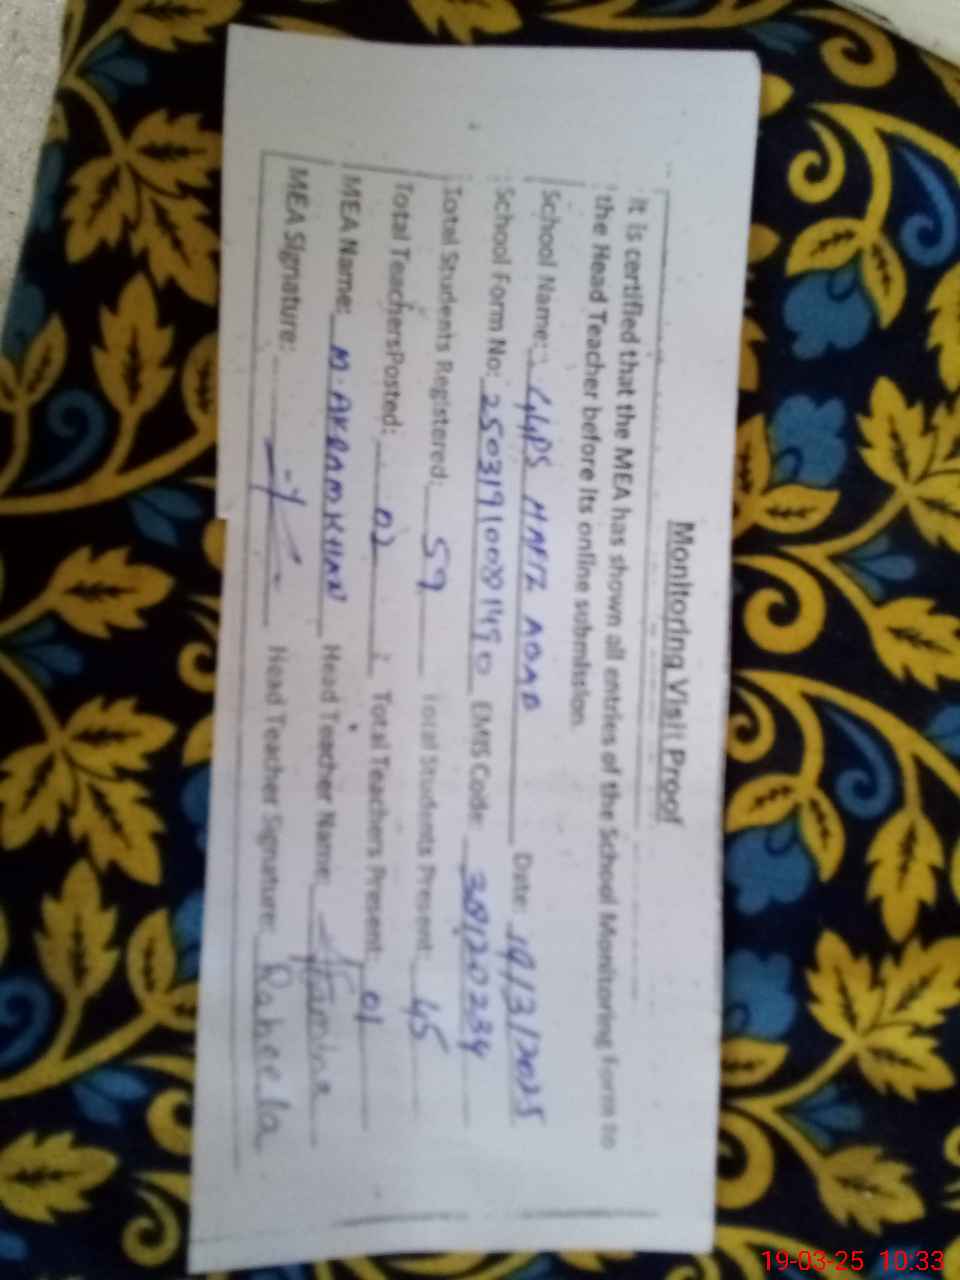 Monitoring Visit Proof
It is certified that the MEA has shown all entries of the School Monitoring Form to
the Head Teacher before its online submission.
School Name: GGPS HAFIZ ABAD Date: 19/3/2025
School Form No: EMIS Code: 38120234
Total Students Registered: 59 Total Students Present: 45
Total TeachersPosted: 02 Total Teachers Present: 01
MEA Name: M. AKRAM KHAN Head Teacher Name:
MEA Signature: Head Teacher Signature: Raheela
19-03-25 10:33